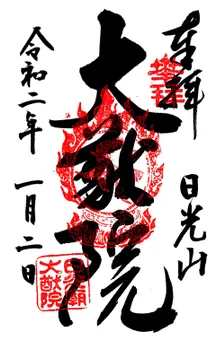 奉拝
日光山
大猷院
令和二年 一月二日
日光廟
大猷院